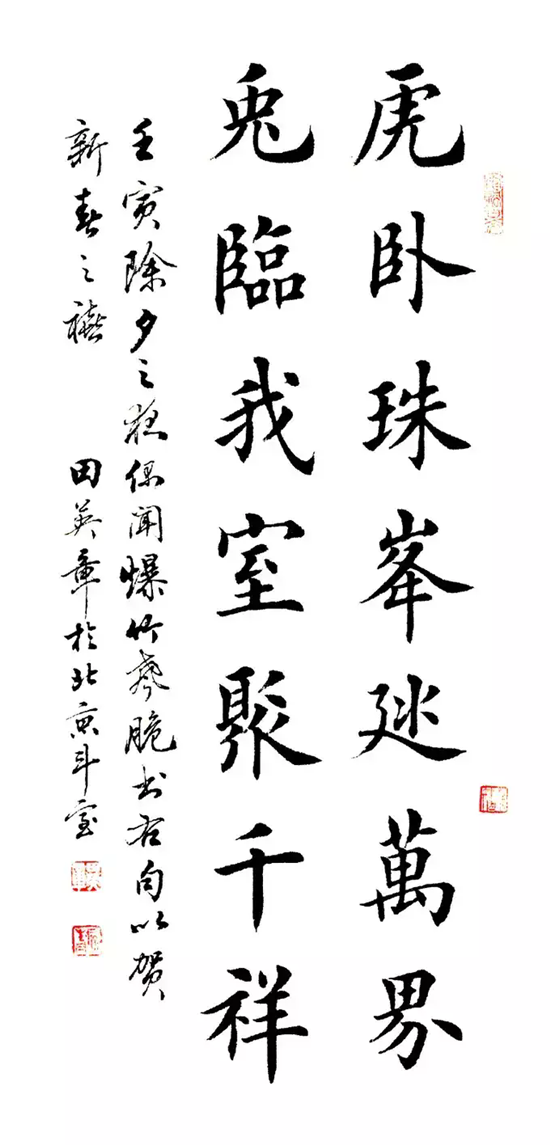 虎卧珠峯延萬界
兎臨我室聚千祥
壬寅除夕之夜偶聞爆竹聲脆书右句以贺
新春之禧 田英章於北京斗室